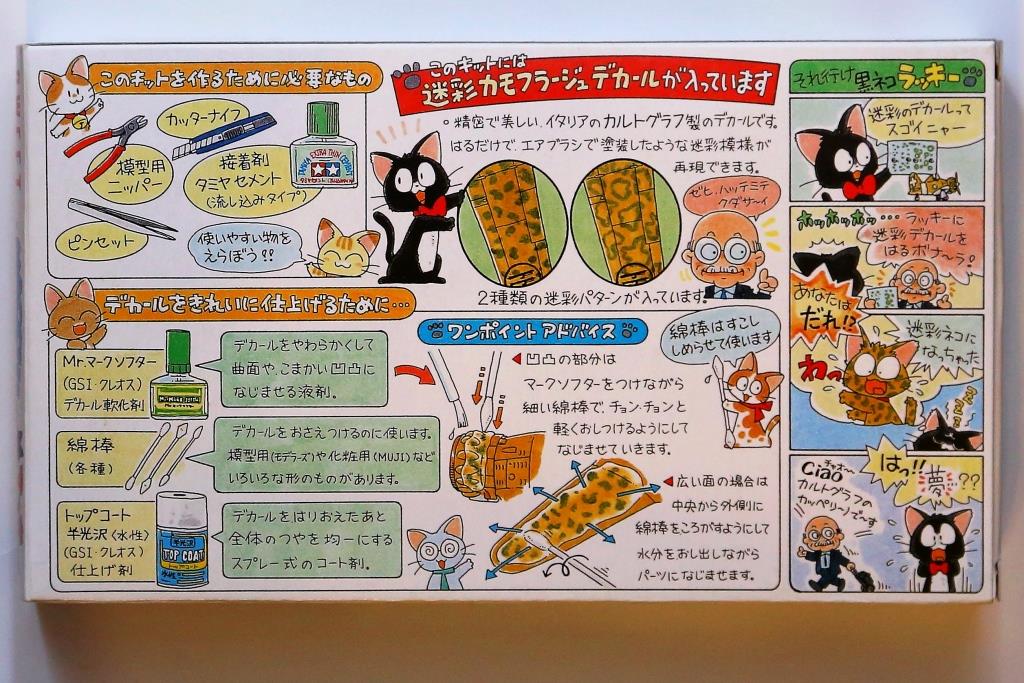 このキットを作るために必要なもの
カッターナイフ
模型用
ニッパー
接着剤
タミヤセメント
(流し込みタイプ)
TAMIYA EXTRA THIN CEMENT
タミヤセメント
ピンセット
使いやすい物を
えらぼう!!
このキットには
迷彩カモフラージュデカールが入っています
○精密で美しい、イタリアのカルトグラフ製のデカールです。
はるだけで、エアブラシで塗装したような迷彩模様が
再現できます。
ゼヒ、ハッテミテ
クダサーイ
2種類の迷彩パターンが入っています。
デカールをきれいに仕上げるために…
Mr.マークソフター
(GSI・クレオス)
デカール軟化剤
デカールをやわらかくして
曲面や、こまかい凹凸に
なじませる液剤。
綿棒
(各種)
デカールをおさえつけるのに使います。
模型用(モデラーズ)や化粧用(MUJI)など
いろいろな形のものがあります。
トップコート
半光沢(水性)
(GSI・クレオス)
仕上げ剤
半光沢
TOP COAT
トップコート
水性
デカールをはりおえたあと
全体のつやを均一にする
スプレー式のコート剤。
ワンポイントアドバイス
綿棒はすこし
しめらせて使います
◀凹凸の部分は
マークソフターをつけながら
細い綿棒で、チョン・チョンと
軽くおしつけるようにして
なじませていきます。
◀広い面の場合は
中央から外側に
綿棒をころがすようにして
水分をおし出しながら
パーツになじませます。
それ行け黒ネコラッキー
迷彩のデカールって
スゴイニャー
ホッホッホッ…
ラッキーに
迷彩デカールを
はるボナ〜ラ!
あなたは
だれ!?
迷彩ネコに
なっちゃった
わっ
ZZZZ
Ciao
チャオ〜
カルトグラフの
カッペリーノで〜す
はっ!!
夢??